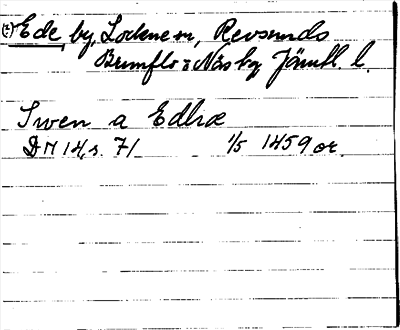 (?) Ede, by, Lockne sn, Revsunds
Brunflo o Näs tg Jämtl. l.
Swen a Edhræ
DN 14, s. 71 1/5 1459 or.